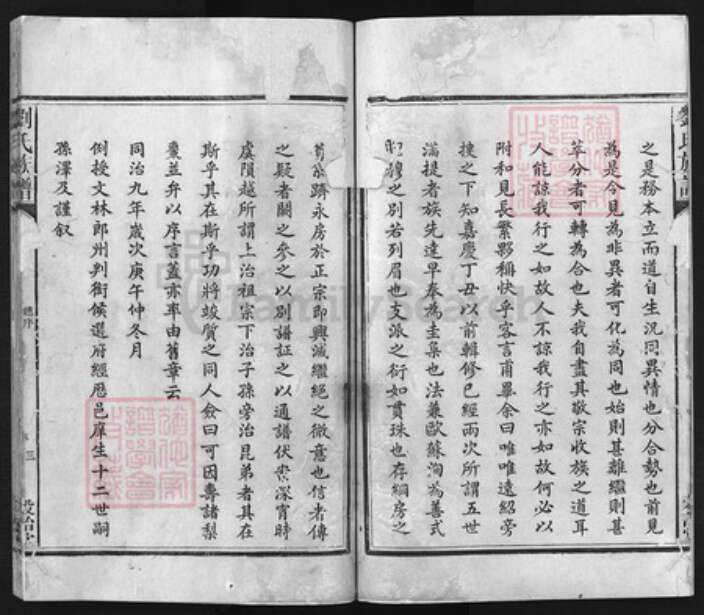 之是務本立而道自生況同異情也分合勢也前見
為是今見為非異者可化為同也始則甚離繼則甚
萃分者可轉為合也夫我自盡其敬宗收族之道耳
人能諒我行之如故人不諒我行之亦如故何必以
附和見長繁夥稱快乎客言甫畢余曰唯唯遠紹旁
搜之下知嘉慶丁丑以前輯修已經兩次所謂五世
滿提者族先達早奉為圭臬也法兼歐蘇洵為善式
昭穆之別若列眉也支派之衍如貫珠也存絧房之
躋永房於正宗即興滅繼絕之微意也信者傳
之疑者闕之參之以別譜証之以通譜伏深宵時
虞隕越所謂上治祖宗下治子孫旁治昆弟者其在
斯乎其在斯乎功將竣質之同人僉曰可因壽諸梨
棗並弁以序言蓋亦率由舊章云
同治九年歲次庚午仲冬月
例授文林郎州判銜候選府經歷邑庠生十二世嗣
孫澤及謹敘
劉氏族譜
總序
三
劉氏族譜
FamilySearch